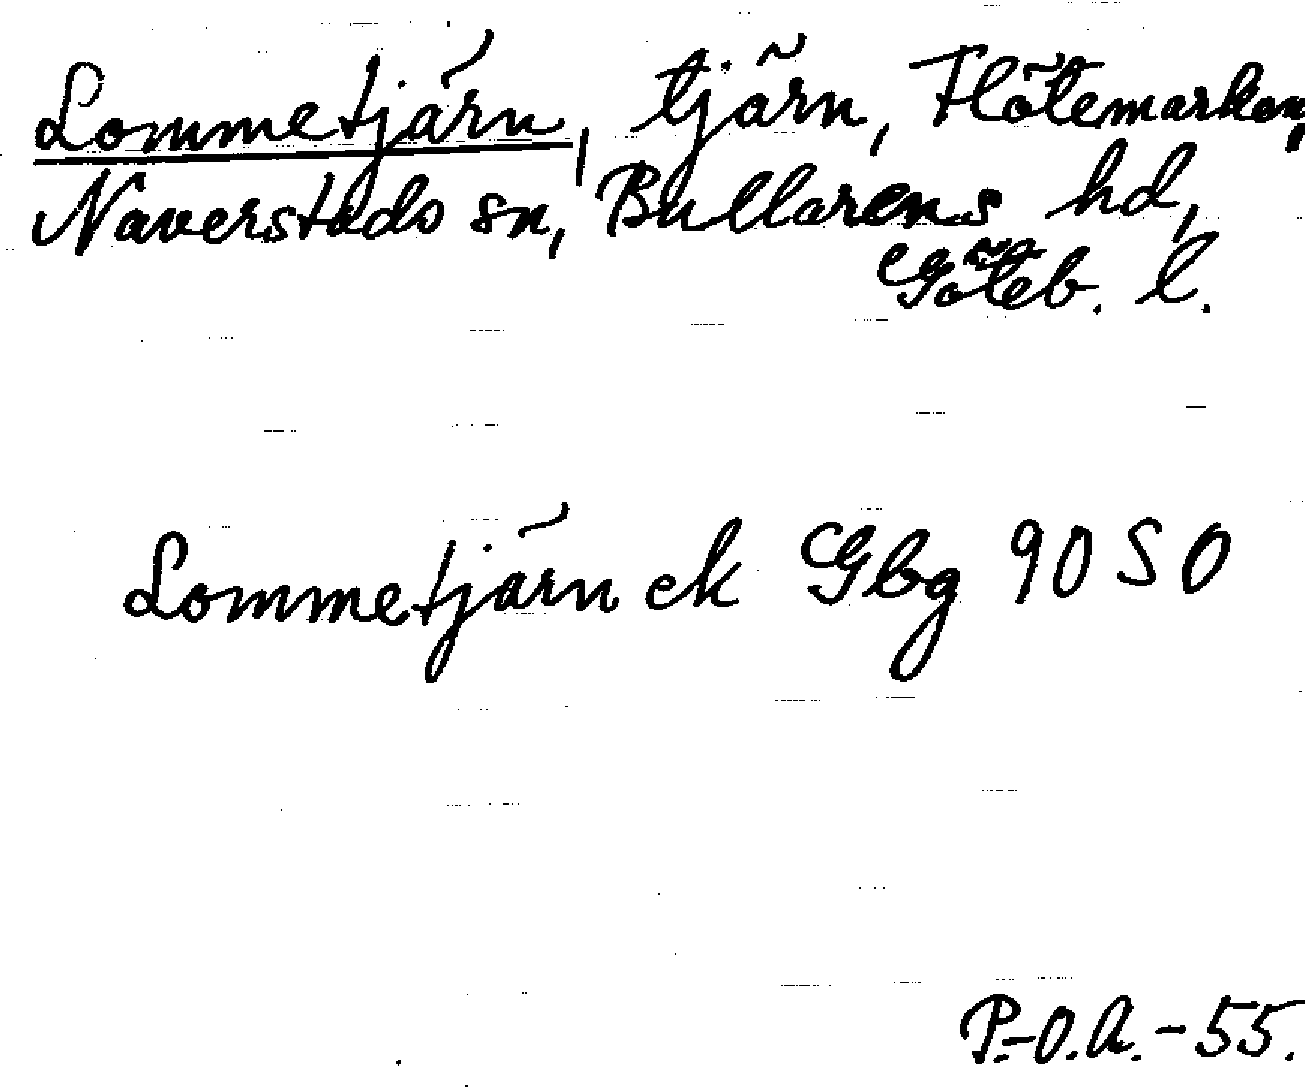 Lommetjärn, tjärn, Flötemarken,
Naverstads sn, Bullarens hd,
Göteb. l.
Lommetjärn ek Gbg 90 SO
P.-O.A.-55.